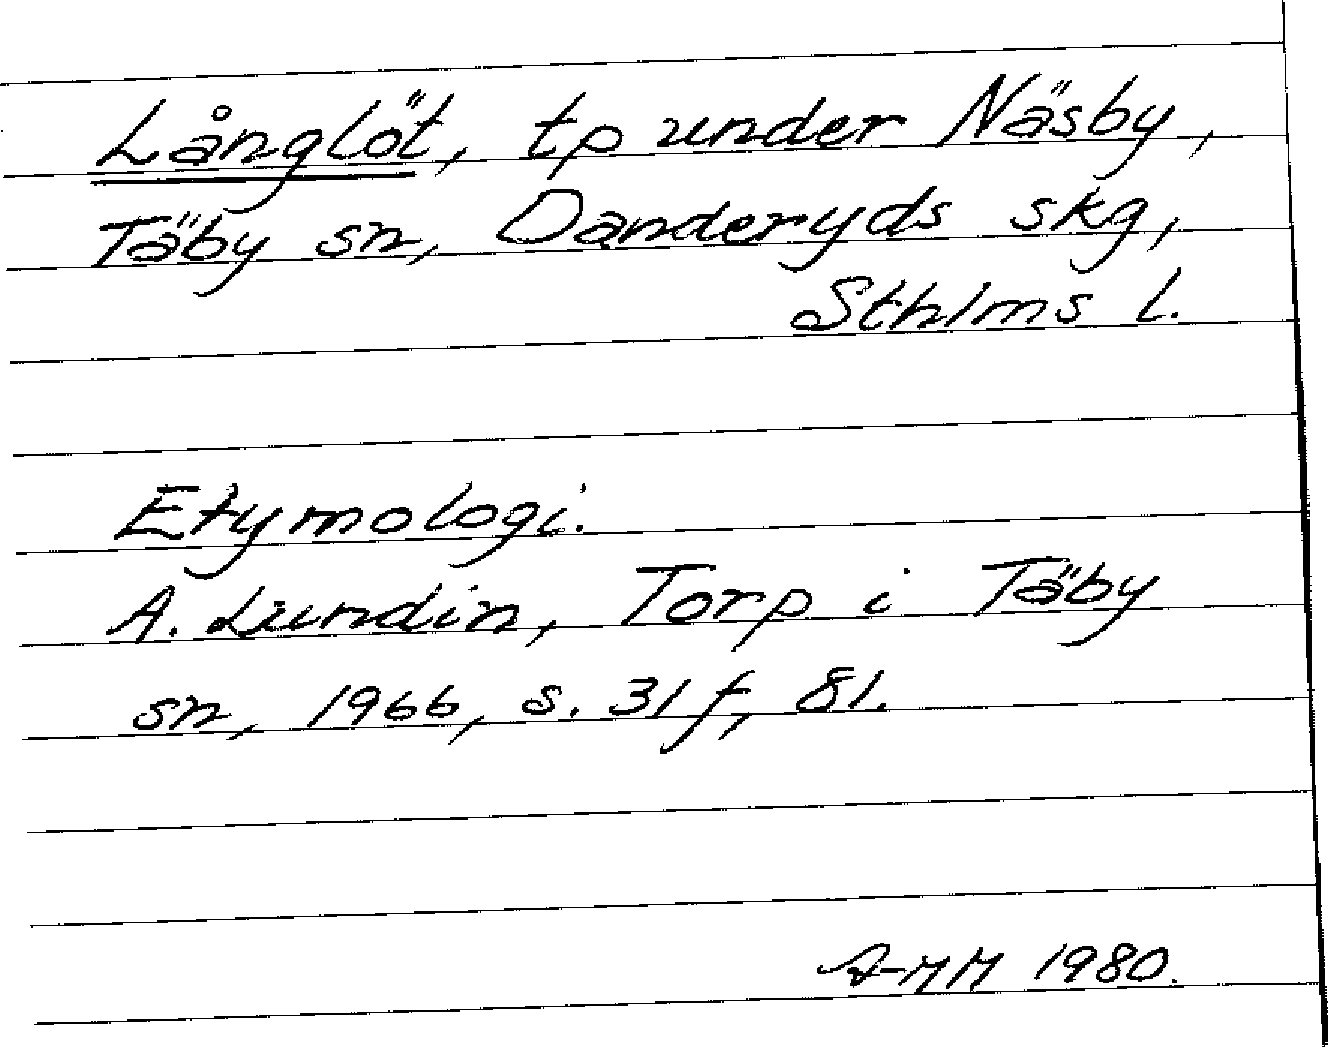 Långlöt, tp under Näsby,
Täby sn, Danderyds skg,
Sthlms l.
Etymologi.
A. Lundin, Torp i Täby
sn, 1966, s. 31 f, 81.
A-MM 1980.